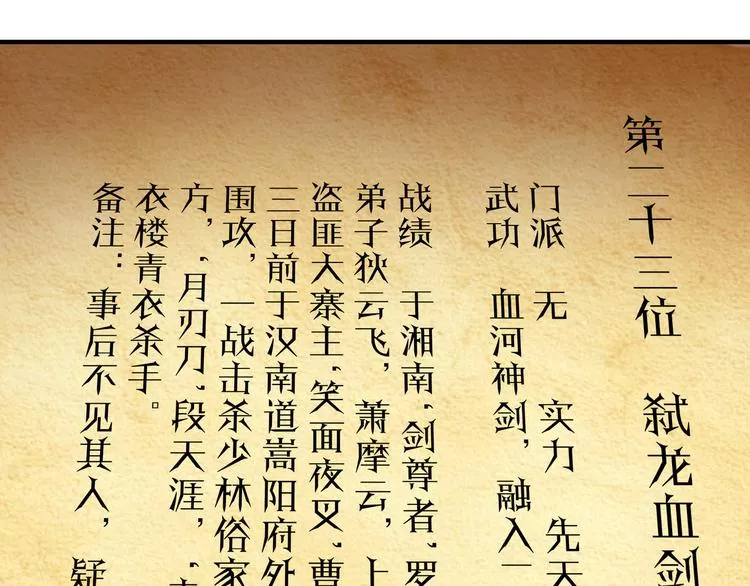 第二十三位 弑龙血剑
门派 无 实力 先天
武功 血河神剑，融入一
战绩 于湘南，剑尊者，罗
弟子狄云飞，萧摩云，上
盗匪大寨主，笑面夜叉，曹
三日前于汉南道嵩阳府外
围攻，一战击杀少林俗家
方，月刃刀，段天涯，
衣楼青衣杀手。
备注：事后不见其人，疑